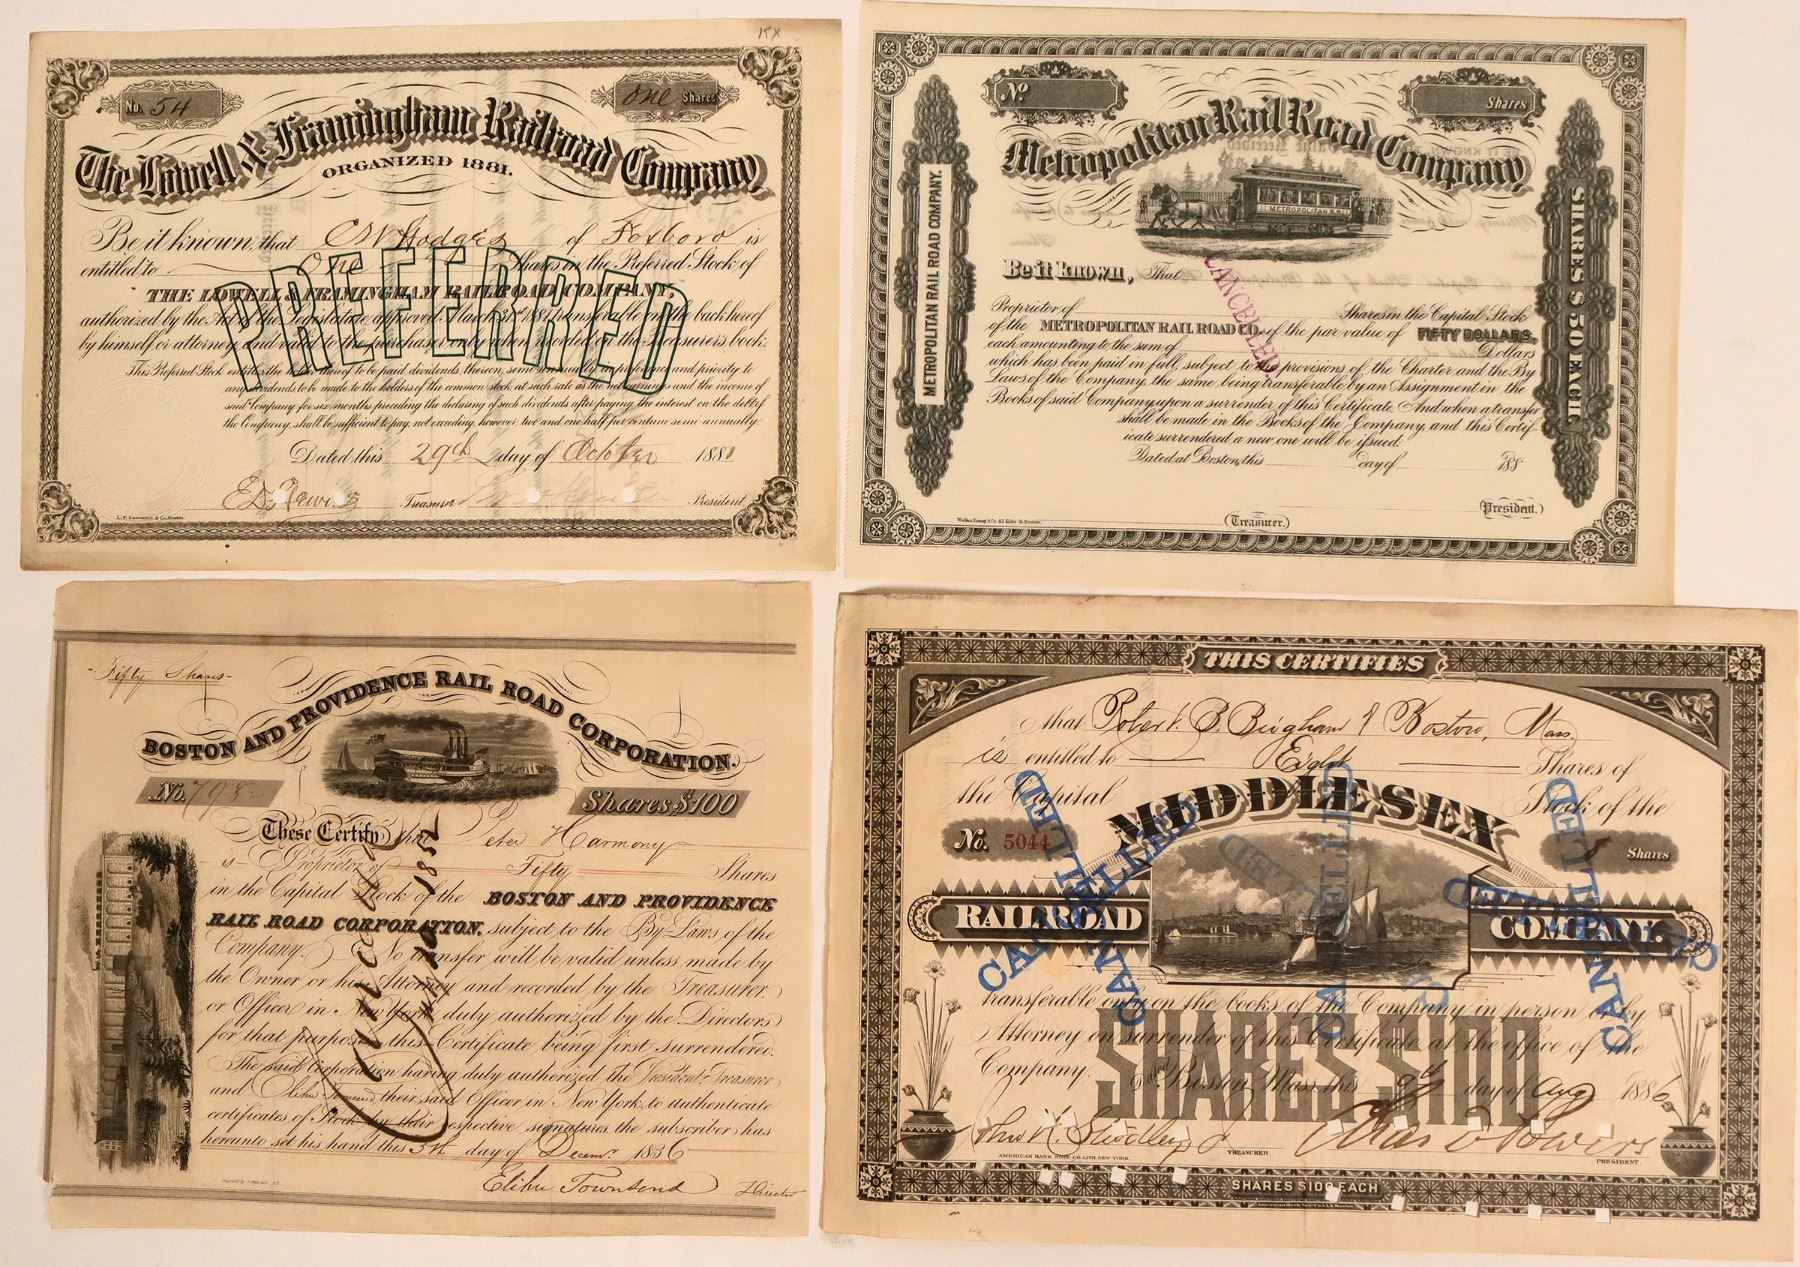 No. 54
One Shares
The Lowell & Framingham Railroad Company
ORGANIZED 1881.
Be it known, that C W Hodges of Foxboro is
entitled to One Shares in the Preferred Stock of
THE LOWELL & FRAMINGHAM RAILROAD COMPANY,
authorized by the Act of the Legislature, approved March transferable on the back hereof
by himself or attorney and valid to the purchaser only when recorded on the Treasurer's book.
This Preferred Stock entitles the holder thereof to be paid dividends thereon, semi annually in preference and priority to
any dividends to be made to the holders of the common stock at such rate as the net earnings and the income of
said Company for six months preceding the declaring of such dividends after paying the interest on the debt of
the Company, shall be sufficient to pay, not exceeding however, two and one half per centum semi annually.
PREFERRED
Dated this 29th day of October 1881
Treasurer President
L. F. Lawrence & Co. Boston.
No
Shares
Metropolitan Rail Road Company,
METROPOLITAN R.R.
METROPOLITAN RAIL ROAD COMPANY.
SHARES $50 EACH.
Be it known, That
Proprietor of Shares in the Capital Stock
of the METROPOLITAN RAIL ROAD CO. of the par value of FIFTY DOLLARS,
each amounting to the sum of Dollars
which has been paid in full, subject to provisions of the Charter and the By
Laws of the Company, the same being transferable by an Assignment in the
Books of said Company upon a surrender of this Certificate. And when a transfer
shall be made in the Books of the Company and this Certif
icate surrendered a new one will be issued.
CANCELLED.
Dated at Boston, this day of 188
(President.)
(Treasurer.)
Fifty Shares
BOSTON AND PROVIDENCE RAIL ROAD CORPORATION.
No. 798
Shares $100
These Certify that Peter Harmony
is Proprietor of Fifty Shares
in the Capital Stock of the BOSTON AND PROVIDENCE
RAIL ROAD CORPORATION, subject to the By Laws of the
Company. No transfer will be valid unless made by
the Owner or his Attorney and recorded by the Treasurer,
or Officer in New York, duly authorized by the Directors
for that purpose, this Certificate being first surrendered.
The said corporation having duly authorized the President, Treasurer
and Elihu Townsend their said Officer in New York, to authenticate
certificates of Stock by their respective signatures the subscriber has
hereunto set his hand this 5th day of Decemr. 1836
Elihu Townsend Director
THIS CERTIFIES
that Robert B. Bingham of Boston, Mass
is entitled to Eight Shares of
the Capital Stock of the
MIDDLESEX
No. 5044
8 Shares
RAILROAD COMPANY.
transferable only on the books of the Company in person or by
Attorney on surrender of this Certificate at the office of the
Company.
SHARES $100
Boston, Mass. this 2d day of Aug 1886
CANCELLED
CANCELLED
CANCELLED
CANCELLED
CANCELLED
TREASURER
PRESIDENT
AMERICAN BANK NOTE CO. LITH. NEW YORK.
SHARES $100 EACH